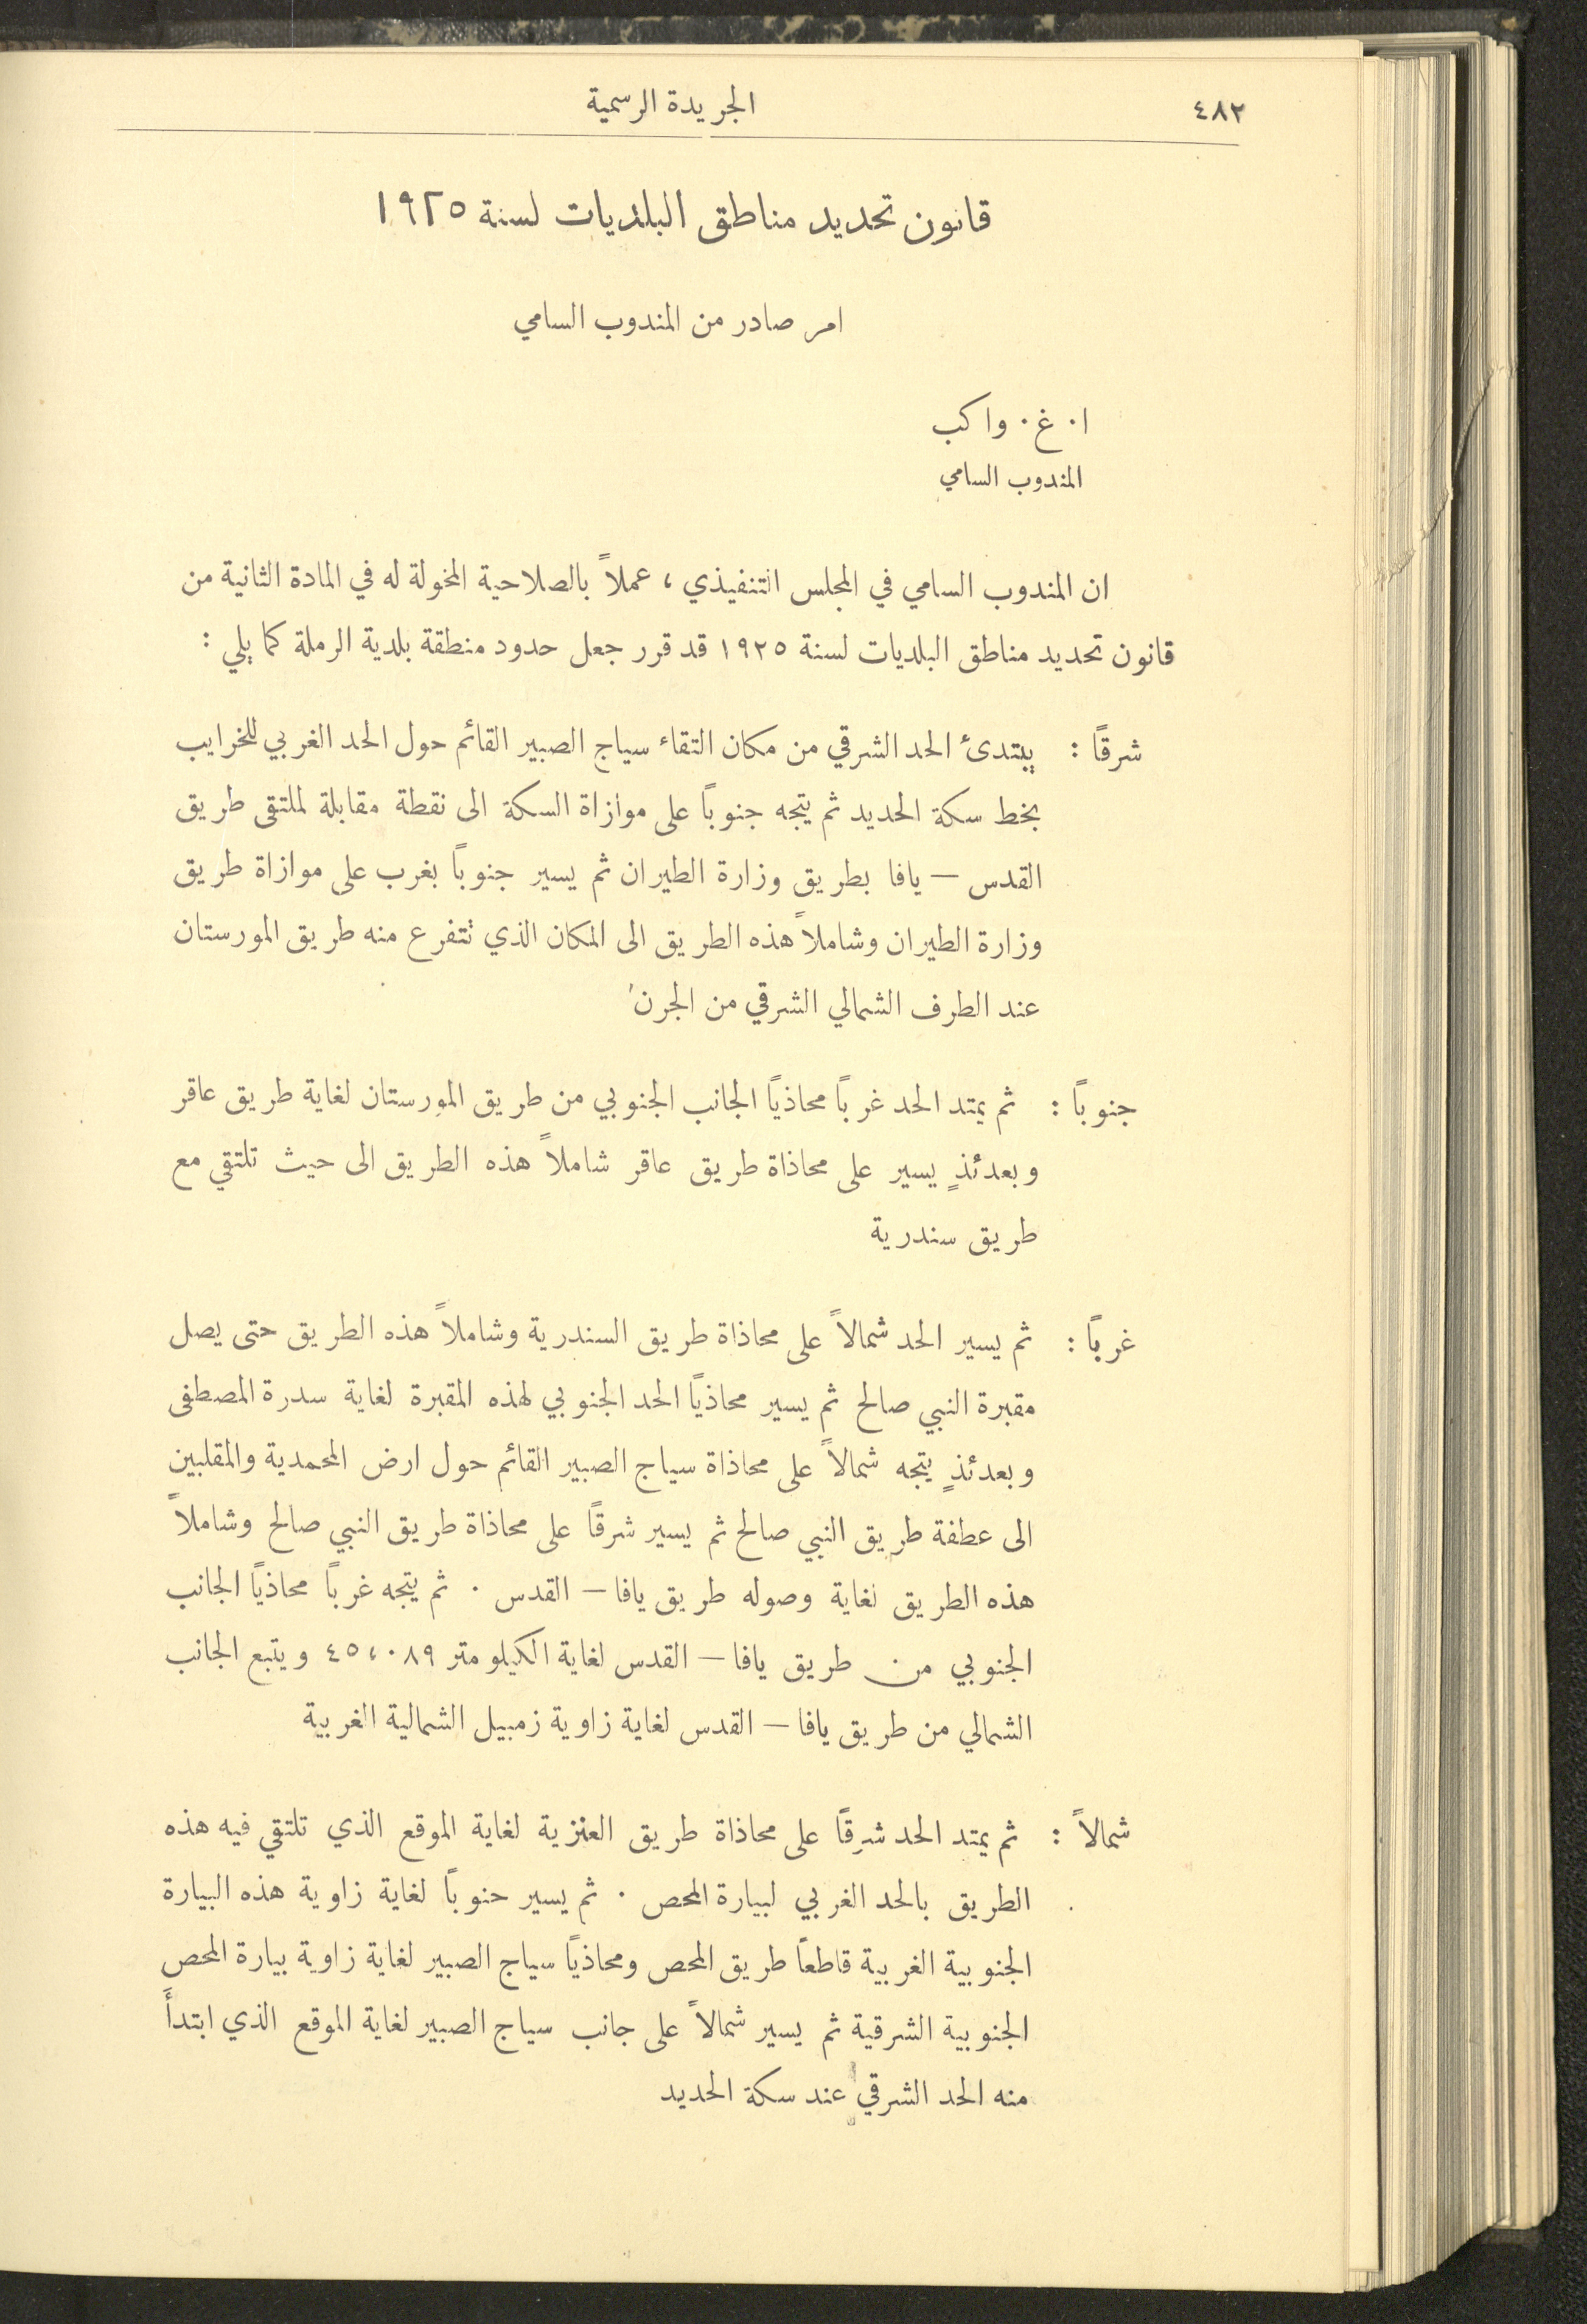 ٤٨٢
الجريدة الرسمية
قانون تحديد مناطق البلديات لسنة ١٩٢٥
امر صادر من المندوب السامي
ا٠ غ٠ واكب
المندوب السامي
ان المندوب السامي في المجلس التنفيذي ، عملاً بالصلاحية المخولة له في المادة الثانية من
قانون تحديد مناطق البلديات لسنة ١٩٢٥ قد قرر جعل حدود منطقة بلدية الرملة كما يلي :
شرقاً : يبتدئ الحد الشرقي من مكان التقاء سياج الصبير القائم حول الحد الغربي للخرايب
بخط سكة الحديد ثم يتجه جنوباً على موازاة السكة الى نقطة مقابلة لملتقى طريق
القدس — يافا بطريق وزارة الطيران ثم يسير جنوباً بغرب على موازاة طريق
وزارة الطيران وشاملاً هذه الطريق الى المكان الذي تتفرع منه طريق المورستان
عند الطرف الشمالي الشرقي من الجرن
جنوباً : ثم يمتد الحد غرباً محاذياً الجانب الجنوبي من طريق المورستان لغاية طريق عاقر
وبعدئذٍ يسير على محاذاة طريق عاقر شاملاً هذه الطريق الى حيث تلتقي مع
طريق سندرية
غرباً : ثم يسير الحد شمالاً على محاذاة طريق السندرية وشاملاً هذه الطريق حتى يصل
مقبرة النبي صالح ثم يسير محاذياً الحد الجنوبي لهذه المقبرة لغاية سدرة المصطفى
وبعدئذٍ يتجه شمالاً على محاذاة سياج الصبير القائم حول ارض المحمدية والمقلبين
الى عطفة طريق النبي صالح ثم يسير شرقاً على محاذاة طريق النبي صالح وشاملاً
هذه الطريق لغاية وصوله طريق يافا — القدس ٠ ثم يتجه غرباً محاذياً الجانب
الجنوبي من طريق يافا — القدس لغاية الكيلو متر ٤٥،٠٨٩ ويتبع الجانب
الشمالي من طريق يافا — القدس لغاية زاوية زمبيل الشمالية الغربية
شمالاً : ثم يمتد الحد شرقاً على محاذاة طريق العنزية لغاية الموقع الذي تلتقي فيه هذه
الطريق بالحد الغربي لبيارة المحص ٠ ثم يسير حنوباً لغاية زاوية هذه البيارة
الجنوبية الغربية قاطعاً طريق المحص ومحاذياً سياج الصبير لغاية زاوية بيارة المحص
الجنوبية الشرقية ثم يسير شمالاً على جانب سياج الصبير لغاية الموقع الذي ابتدأَ
منه الحد الشرقي عند سكة الحديد